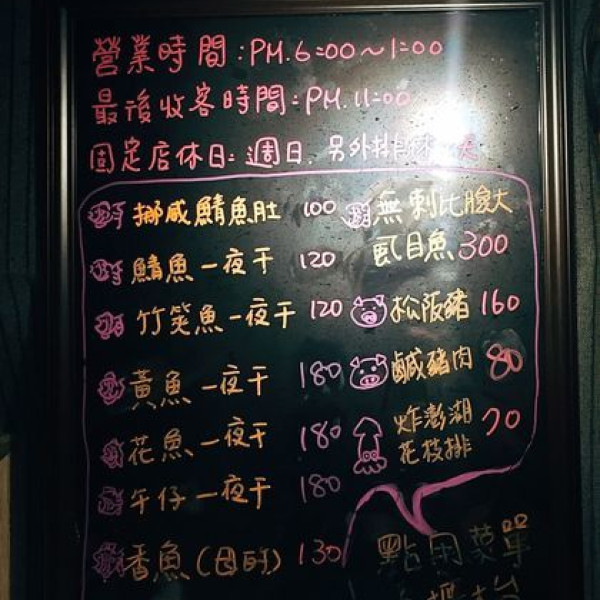 營業時間:PM.6:00~1:00
最後收客時間:PM.11:00
固定店休日:週日,另外排休
挪威鯖魚肚 100
鯖魚一夜干 120
竹筴魚一夜干 120
黃魚一夜干 180
花魚一夜干 180
午仔一夜干 180
香魚(母的) 130
無刺比臉大
虱目魚 300
松阪豬 160
鹹豬肉 80
炸澎湖
花枝排 70
點用菜單